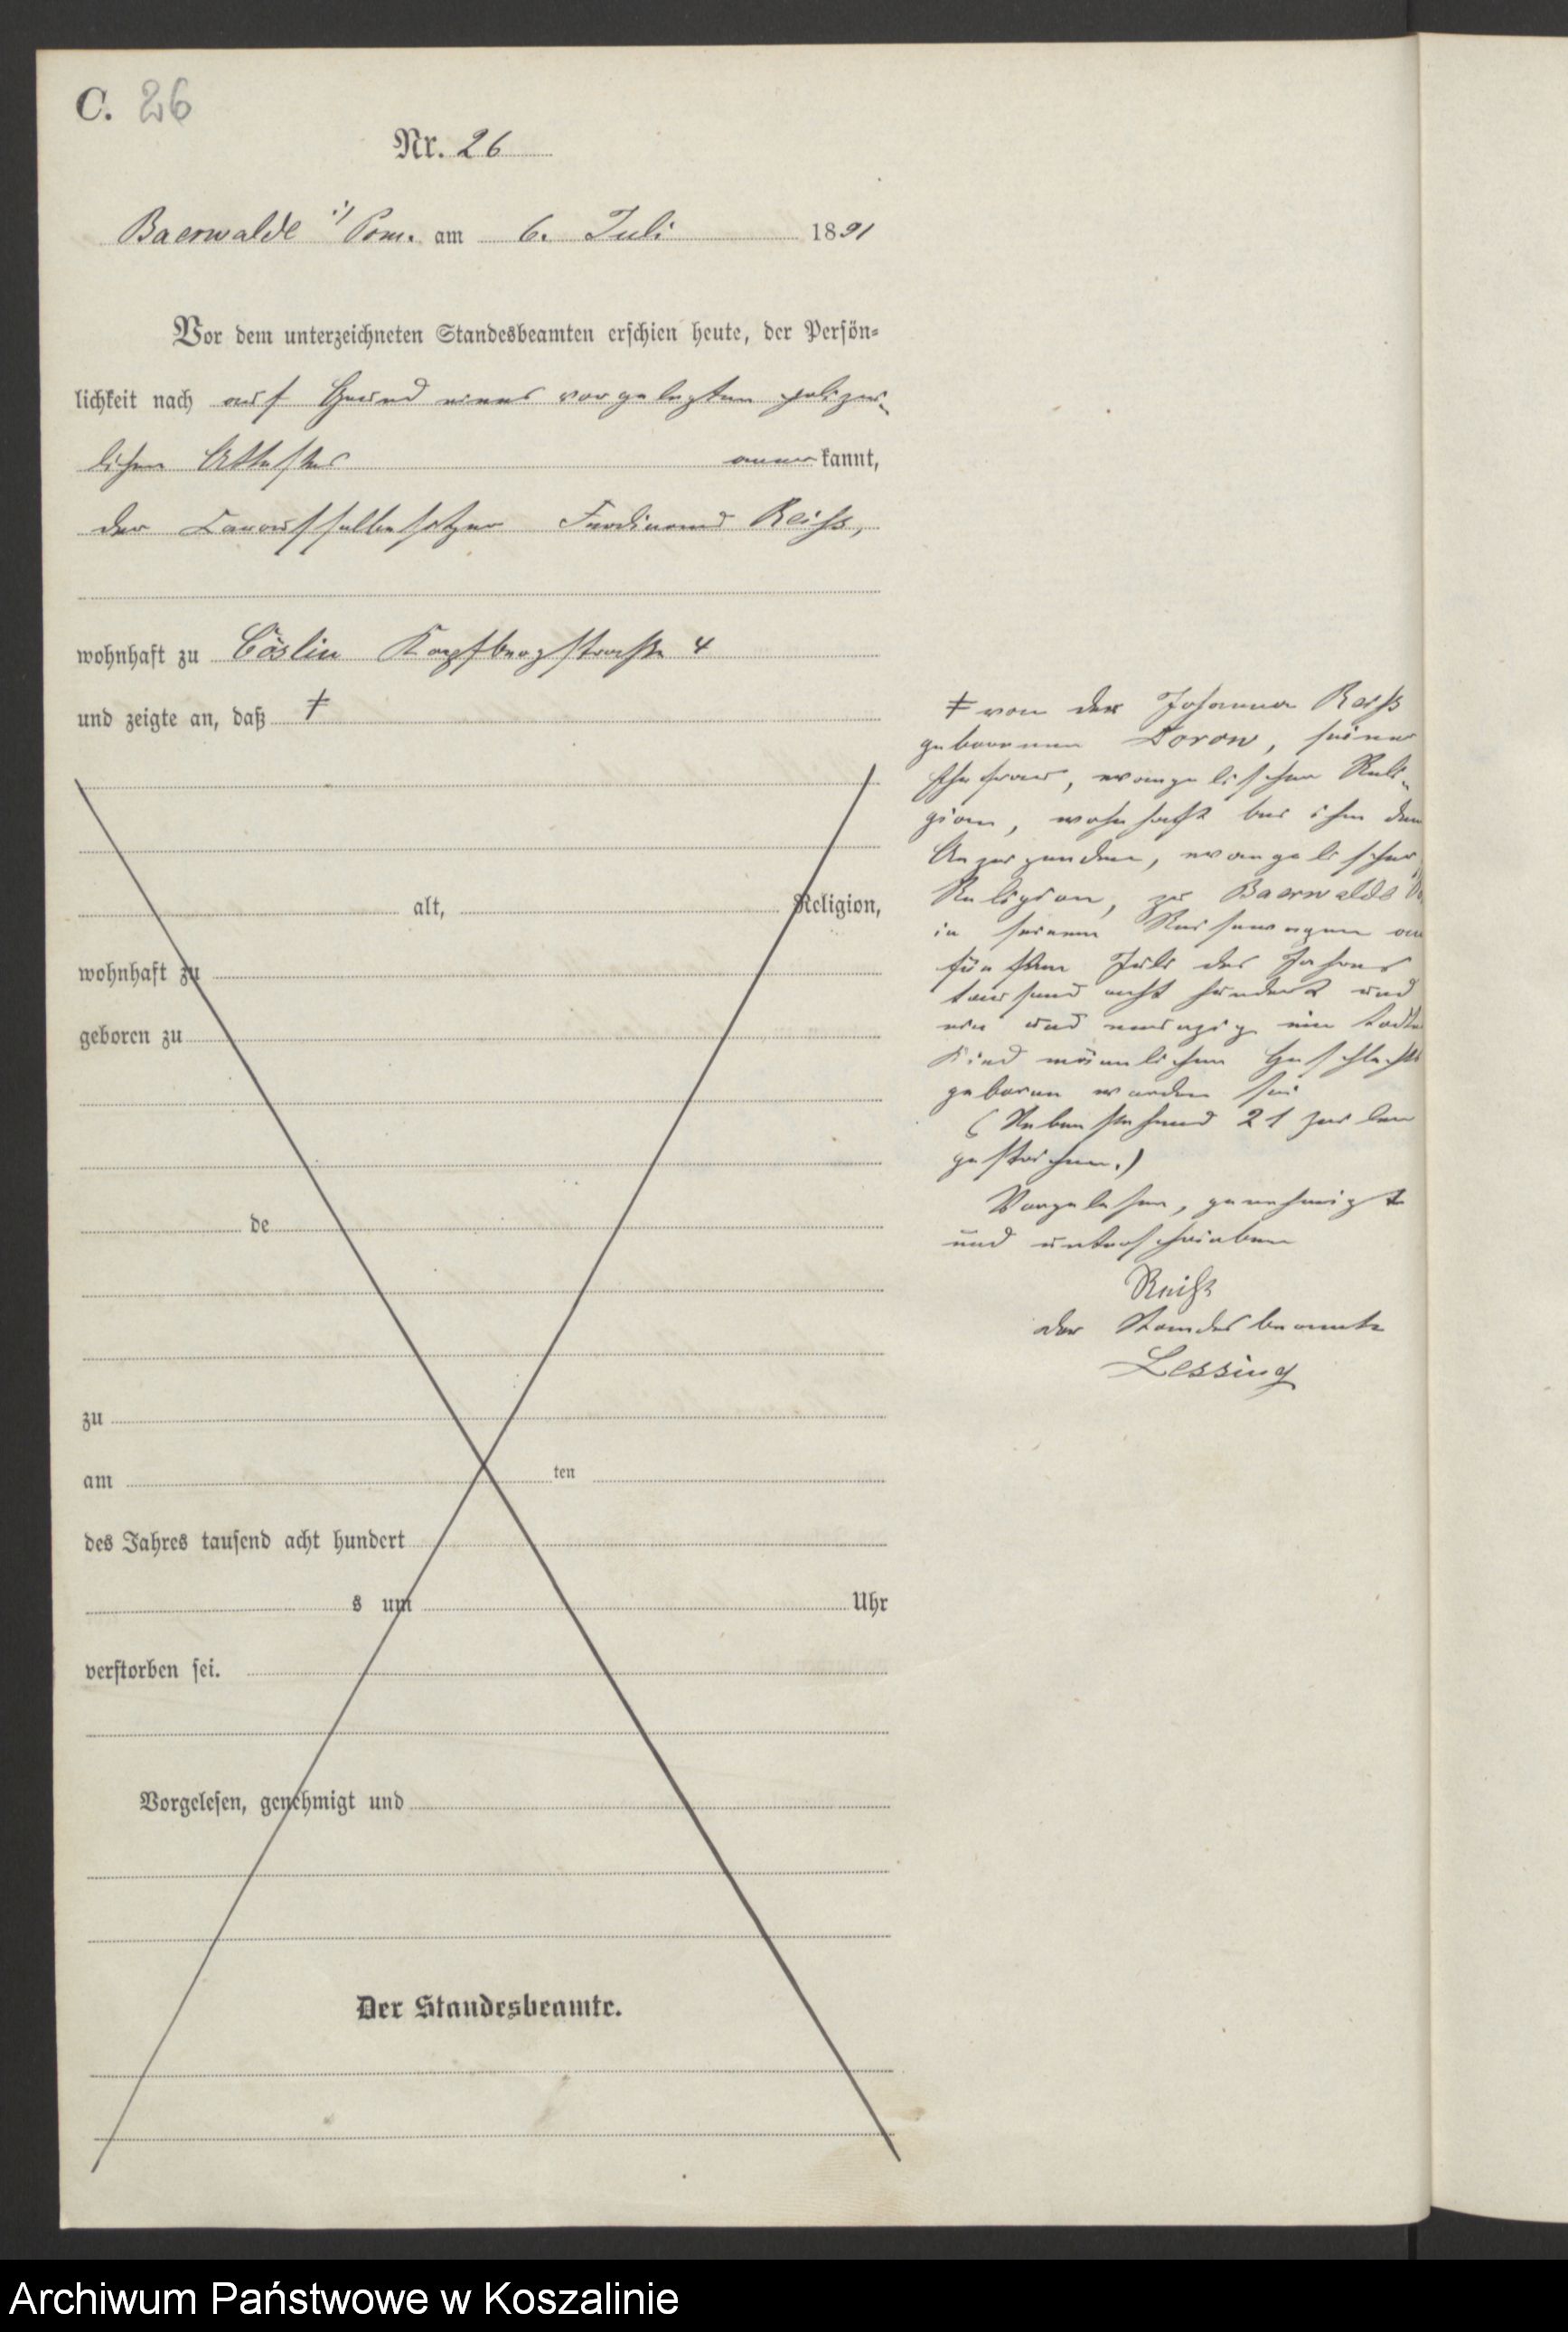 C. 26
Nr. 26
Baerwalde i/ Pom. am 6. Juli 1891
Vor dem unterzeichneten Standesbeamten erschien heute, der Persön-
lichkeit nach auf Grund eines vorgelegten polizei-
lichen Attestes anerkannt,
der Carousselbesitzer Ferdinand Reiß,
wohnhaft zu Cöslin Kopfbergstraße 4
und zeigte an, daß ‡
alt, Religion,
wohnhaft zu
geboren zu
de
zu
am ten
des Jahres tausend acht hundert
s um Uhr
verstorben sei.
Vorgelesen, genehmigt und
Der Standesbeamte.
‡ von der Johanna Reiß
geborenen Doron, seiner
Ehefrau, evangelischer Reli-
gion, wohnhaft bei ihm dem
Anzeigenden, evangelischer
Religion, zu Baerwalde
in seinem Reisewagen am
fünften Juli des Jahres
tausend acht hundert und
ein und neunzig ein todtes
Kind männlichen Geschlechts
geboren worden sei
(Nebenstehend 21 Zeilen
gestrichen.)
Vorgelesen, genehmigt
und unterschrieben
Reiß
der Standesbeamte
Lessing
Archiwum Państwowe w Koszalinie